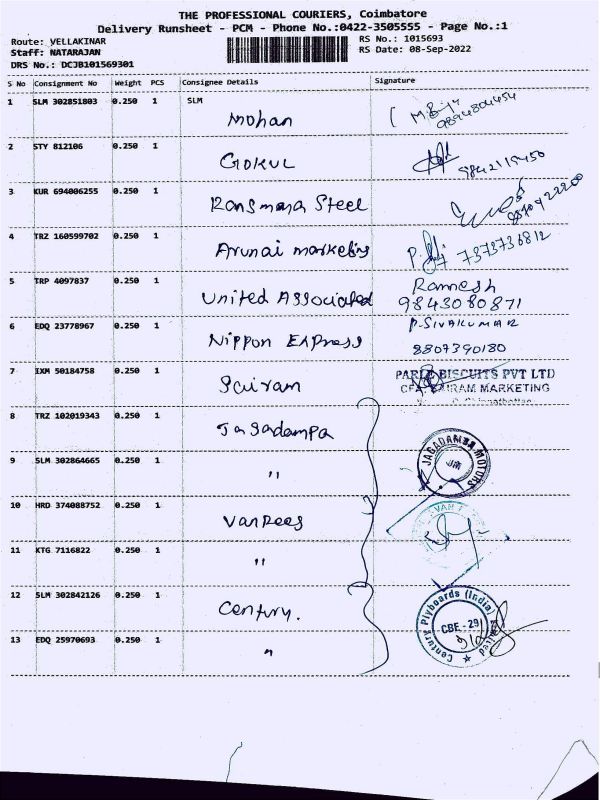 THE PROFESSIONAL COURIERS, Coimbatore
Delivery Runsheet - PCM - Phone No.:0422-3505555 - Page No.:1
Route: VELLAKINAR
RS No.: 1015693
Staff: NATARAJAN
RS Date: 08-Sep-2022
DRS No.: DCJB101569301
S No Consignment No Weight PCS Consignee Details Signature
1 SLM 302851803 0.250 1 SLM
Mohan
2 STY 812106 0.250 1
GOKUL 9842115450
3 KUR 694006255 0.250 1
Steel
4 TRZ 160599702 0.250 1
Arunai marketing 7373736812
5 TRP 4097837 0.250 1
United Associated Ramesh
9843080871
6 EDQ 23778967 0.250 1 P.SIVAKUMAR
Nippon Express 8807390180
7 IXM 50184758 0.250 1 PARLE BISCUITS PVT LTD
Sairam SAIRAM MARKETING
8 TRZ 102019343 0.250 1
Jagadampa
JAGADAMBA MOTORS
JM
9 SLM 302864665 0.250 1
"
10 HRD 374088752 0.250 1
VanRees
11 KTG 7116822 0.250 1
"
12 SLM 302842126 0.250 1
Century.
Century Plyboards (India) Limited
CBE - 29
13 EDQ 25970693 0.250 1
"